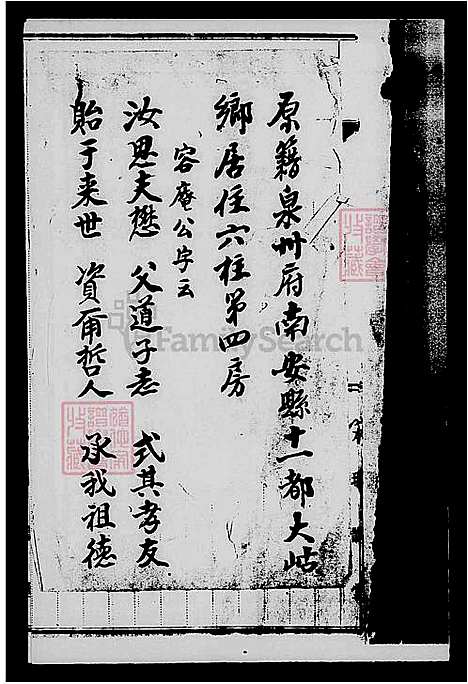 原籍泉州府南安縣十一都大岵
鄉居住六柱第四房
容庵公字云
汝思夫懋 父道子志 式其孝友
貽于来世 資爾哲人 承我祖德
FamilySearch